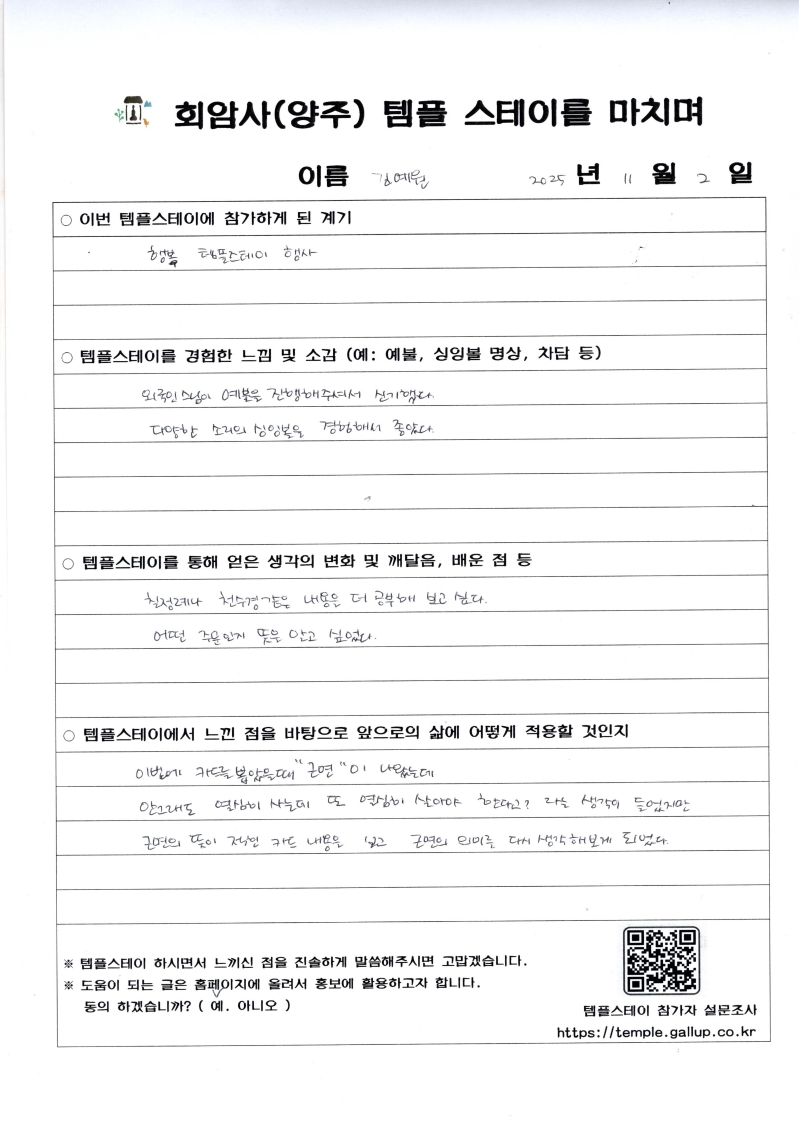 회암사(양주) 템플 스테이를 마치며
이름 김예원 2025 년 11 월 2 일
○ 이번 템플스테이에 참가하게 된 계기
행복 템플스테이 행사
○ 템플스테이를 경험한 느낌 및 소감 (예: 예불, 싱잉볼 명상, 차담 등)
외국인 스님이 예불을 진행해주셔서 신기했다.
다양한 소리의 싱잉볼을 경험해서 좋았다.
○ 템플스테이를 통해 얻은 생각의 변화 및 깨달음, 배운 점 등
칠정례나 천수경같은 내용을 더 공부해 보고 싶다.
어떤 주문인지 뜻을 알고 싶었다.
○ 템플스테이에서 느낀 점을 바탕으로 앞으로의 삶에 어떻게 적용할 것인지
이번에 카드를 뽑았을때 "근면"이 나왔는데
안그래도 열심히 사는데 또 열심히 살아야 한다고? 라는 생각이 들었지만
근면의 뜻이 적힌 카드 내용을 읽고 근면의 의미를 다시 생각해보게 되었다.
※ 템플스테이 하시면서 느끼신 점을 진솔하게 말씀해주시면 고맙겠습니다.
※ 도움이 되는 글은 홈페이지에 올려서 홍보에 활용하고자 합니다.
동의 하겠습니까? ( 예. 아니오 )
템플스테이 참가자 설문조사
https://temple.gallup.co.kr